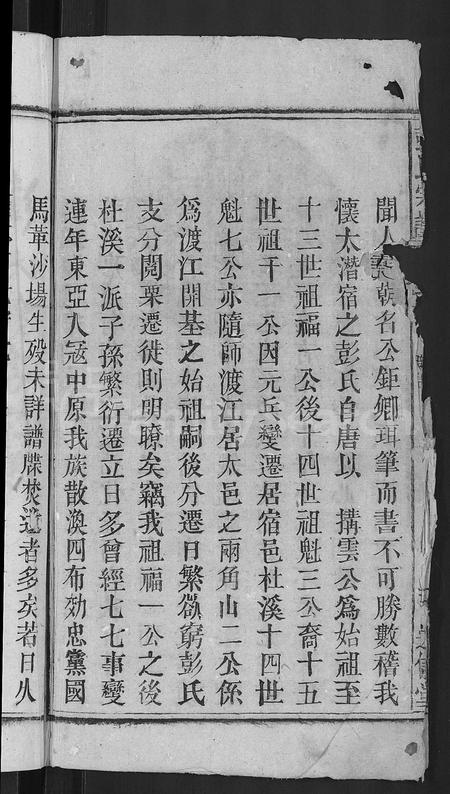 聞人裹朝名公鉅卿珥筆而書不可勝數稽我
懷太潛宿之彭氏自唐以 搆雲公爲始祖至
十三世祖福一公後十四世祖魁三公裔十五
世祖千一公因元兵變遷居宿邑杜溪十四世
魁七公亦隨師渡江居太邑之兩角山二公係
爲渡江開基之始祖嗣後分遷日繁欲窮彭氏
支分閱栗遷徙則明瞭矣竊我祖福一公之後
杜溪一派子孫繁衍遷立日多曾經七七事變
連年東亞人寇中原我族散渙四布効忠黨國
馬革沙場生殁未詳譜牒焚 者多矣若日久